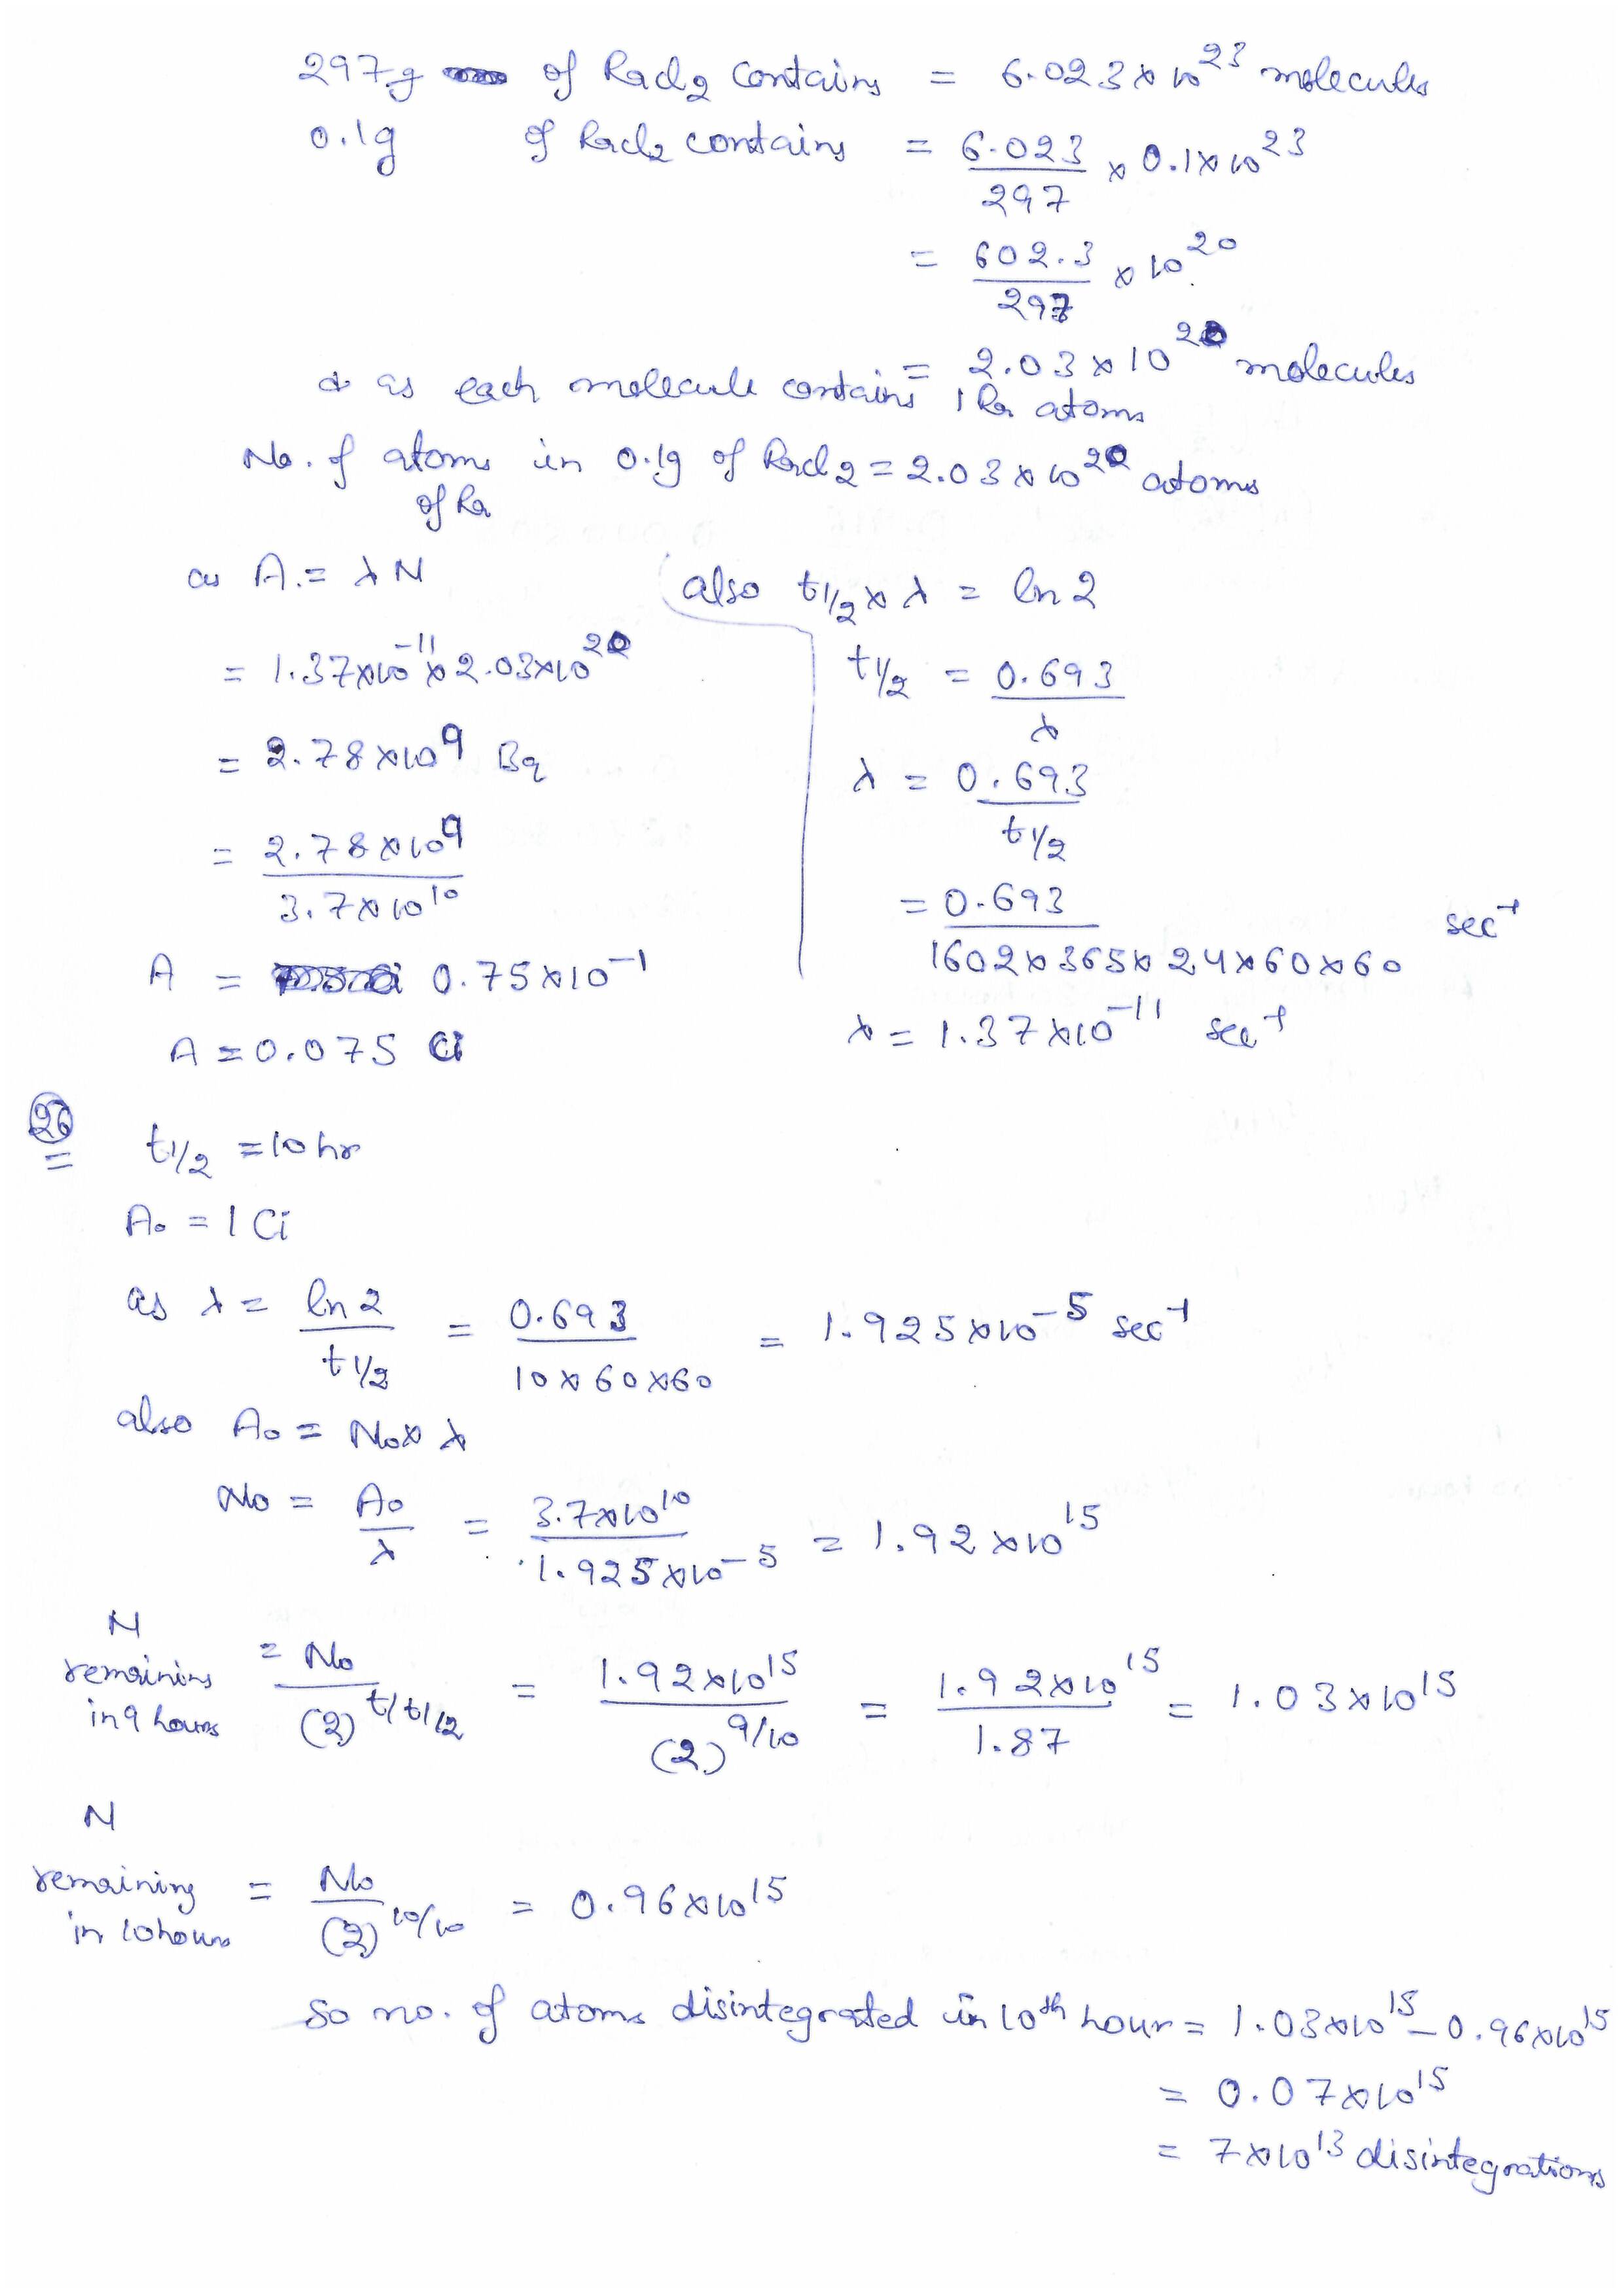 297g of Racl2 contains = 6.023 × 10^23 molecules
0.1g of Racl2 contains = 6.023/297 × 0.1 × 10^23
= 602.3/297 × 10^20
= 2.03 × 10^20 molecules
& as each molecule contains 1 Ra atoms
No. of atoms in 0.1g of Racl2 = 2.03 × 10^20 atoms
of Ra
as A = λN
= 1.37×10^-11 × 2.03×10^20
= 2.78×10^9 Bq
= 2.78×10^9 / 3.7×10^10
A = 0.75×10^-1
A = 0.075 Ci
also t1/2 × λ = ln 2
t1/2 = 0.693/λ
λ = 0.693/t1/2
= 0.693 / 1602×365×24×60×60 sec^-1
λ = 1.37×10^-11 sec^-1
26
t1/2 = 10 hr
A0 = 1 Ci
as λ = ln 2/t1/2 = 0.693/10×60×60 = 1.925×10^-5 sec^-1
also A0 = N0×λ
N0 = A0/λ = 3.7×10^10 / 1.925×10^-5 = 1.92×10^15
N
remaining in 9 hours = N0/(2)^t/t1/2 = 1.92×10^15/(2)^9/10 = 1.92×10^15/1.87 = 1.03×10^15
N
remaining in 10 hours = N0/(2)^10/10 = 0.96×10^15
So no. of atoms disintegrated in 10th hour = 1.03×10^15 – 0.96×10^15
= 0.07×10^15
= 7×10^13 disintegrations